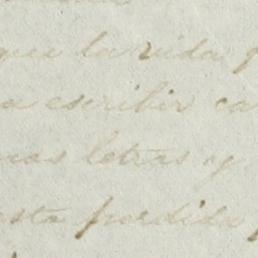 que la vida q
a escribir ca
nas letras y
esta perdida